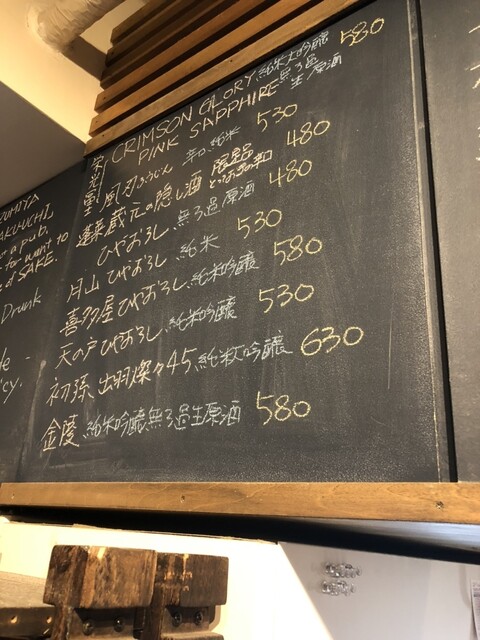 栄光 CRIMSON GLORY 純米大吟醸 580
PINK SAPPHIRE 無ろ過生原酒
聖 風刃ふうじん 辛口、純米 530
蓬莱 蔵元の隠し酒 限定品 とっておきの辛口 480
ひやおろし、無ろ過原酒 480
月山 ひやおろし 純米 530
喜多屋 ひやおろし、純米吟醸 580
天の戸 ひやおろし、純米吟醸 530
初孫、出羽燦々45、純米大吟醸 630
金陵 純米吟醸無ろ過生原酒 580
UMIYA
AKUUCHI
a pub.
for want to
of SAKE.
Drunk